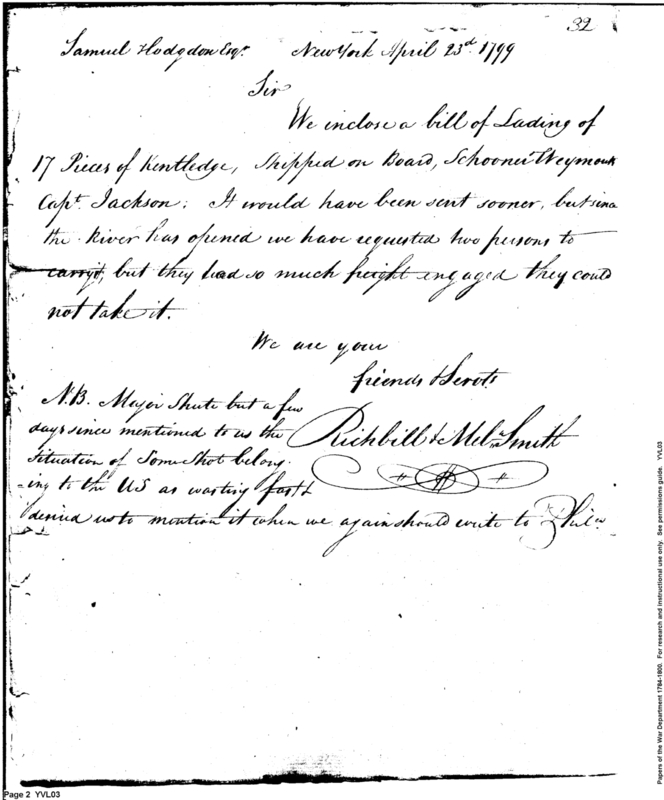 32
Samuel Hodgdon Esqr. New York April 23d. 1799
Sir
We inclose a bill of Lading of
17 Pieces of Kentledge, Shipped on Board, Schooner Weymouth
Capt. Jackson: It would have been sent sooner, but since
the River has opened we have requested two persons to
carry it, but they had so much freight engaged they could
not take it.
We are your
friends & Servts
Richbill & Mel Smith
N.B. Major Shute but a few
days since mentioned to us the
Situation of Some Shot belong-
ing to the US as wasting fast &
desired us to mention it when we again should write to Phila
Page 2 YVL03
Papers of the War Department 1784-1800. For research and instructional use only. See permissions guide. YVL03